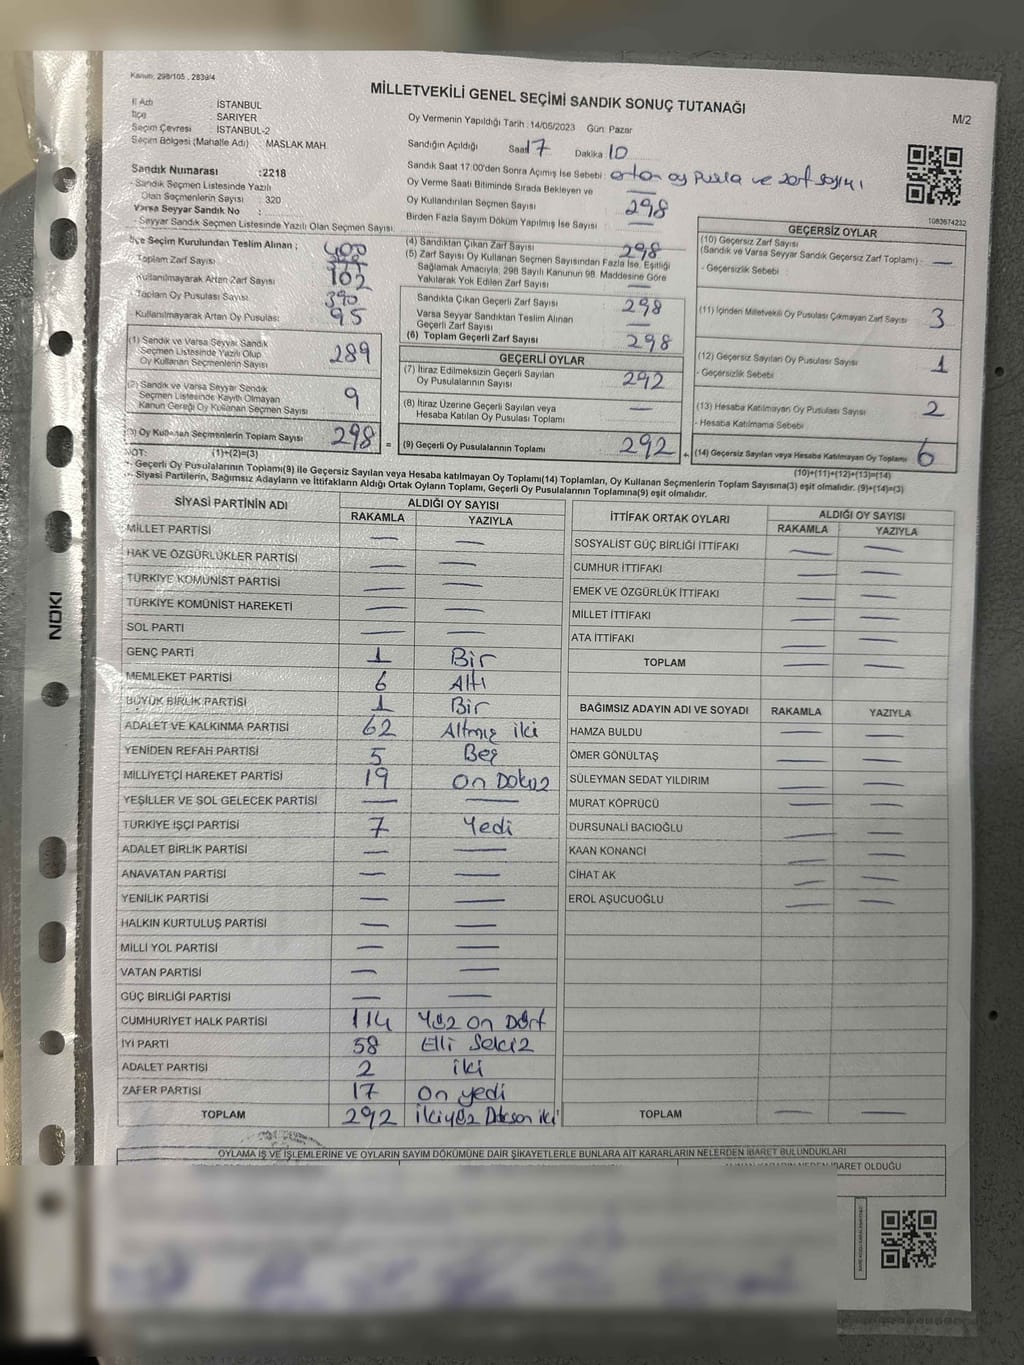 Kanun: 298/105 , 2839/4
MİLLETVEKİLİ GENEL SEÇİMİ SANDIK SONUÇ TUTANAĞI
M/2
İl Adı : İSTANBUL
İlçe : SARIYER
Seçim Çevresi : İSTANBUL-2
Seçim Bölgesi (Mahalle Adı) : MASLAK MAH.
Oy Vermenin Yapıldığı Tarih : 14/05/2023 Gün: Pazar
Sandığın Açıldığı Saat 17 Dakika 10
Sandık Saat 17:00'den Sonra Açılmış İse Sebebi : artan oy pusula ve zarf sayımı
Oy Verme Saati Bitiminde Sırada Bekleyen ve
Oy Kullandırılan Seçmen Sayısı —
298
Birden Fazla Sayım Döküm Yapılmış İse Sayısı : —
1083674232
Sandık Numarası :2218
Sandık Seçmen Listesinde Yazılı
Olan Seçmenlerin Sayısı : 320
Varsa Seyyar Sandık No :
Seyyar Sandık Seçmen Listesinde Yazılı Olan Seçmen Sayısı:
İlçe Seçim Kurulundan Teslim Alınan ;
Toplam Zarf Sayısı 400
Kullanılmayarak Artan Zarf Sayısı 102
Toplam Oy Pusulası Sayısı 390
Kullanılmayarak Artan Oy Pusulası 95
(1) Sandık ve Varsa Seyyar Sandık
Seçmen Listesinde Yazılı Olup
Oy Kullanan Seçmenlerin Sayısı 289
(2) Sandık ve Varsa Seyyar Sandık
Seçmen Listesinde Kayıtlı Olmayan
Kanun Gereği Oy Kullanan Seçmen Sayısı 9
(3) Oy Kullanan Seçmenlerin Toplam Sayısı 298 =
(4) Sandıktan Çıkan Zarf Sayısı 298
(5) Zarf Sayısı Oy Kullanan Seçmen Sayısından Fazla İse, Eşitliği
Sağlamak Amacıyla, 298 Sayılı Kanunun 98. Maddesine Göre
Yakılarak Yok Edilen Zarf Sayısı —
Sandıkta Çıkan Geçerli Zarf Sayısı 298
Varsa Seyyar Sandıktan Teslim Alınan
Geçerli Zarf Sayısı —
(6) Toplam Geçerli Zarf Sayısı 298
GEÇERLİ OYLAR
(7) İtiraz Edilmeksizin Geçerli Sayılan
Oy Pusulalarının Sayısı 292
(8) İtiraz Üzerine Geçerli Sayılan veya
Hesaba Katılan Oy Pusulası Toplamı —
(9) Geçerli Oy Pusulalarının Toplamı 292 +
GEÇERSİZ OYLAR
(10) Geçersiz Zarf Sayısı
(Sandık ve Varsa Seyyar Sandık Geçersiz Zarf Toplamı) : —
- Geçersizlik Sebebi :
(11) İçinden Milletvekili Oy Pusulası Çıkmayan Zarf Sayısı 3
(12) Geçersiz Sayılan Oy Pusulası Sayısı 1
- Geçersizlik Sebebi
(13) Hesaba Katılmayan Oy Pusulası Sayısı 2
- Hesaba Katılmama Sebebi
(14) Geçersiz Sayılan veya Hesaba Katılmayan Oy Toplamı 6
NOT: (1)+(2)=(3)
(10)+(11)+(12)+(13)=(14)
- Geçerli Oy Pusulalarının Toplamı(9) ile Geçersiz Sayılan veya Hesaba katılmayan Oy Toplamı(14) Toplamları, Oy Kullanan Seçmenlerin Toplam Sayısına(3) eşit olmalıdır. (9)+(14)=(3)
- Siyasi Partilerin, Bağımsız Adayların ve İttifakların Aldığı Ortak Oyların Toplamı, Geçerli Oy Pusulalarının Toplamına(9) eşit olmalıdır.
SİYASİ PARTİNİN ADI ALDIĞI OY SAYISI
RAKAMLA YAZIYLA
MİLLET PARTİSİ — —
HAK VE ÖZGÜRLÜKLER PARTİSİ — —
TÜRKİYE KOMÜNİST PARTİSİ — —
TÜRKİYE KOMÜNİST HAREKETİ — —
SOL PARTİ — —
GENÇ PARTİ 1 Bir
MEMLEKET PARTİSİ 6 Altı
BÜYÜK BİRLİK PARTİSİ 1 Bir
ADALET VE KALKINMA PARTİSİ 62 Altmış iki
YENİDEN REFAH PARTİSİ 5 Beş
MİLLİYETÇİ HAREKET PARTİSİ 19 On Dokuz
YEŞİLLER VE SOL GELECEK PARTİSİ — —
TÜRKİYE İŞÇİ PARTİSİ 7 Yedi
ADALET BİRLİK PARTİSİ — —
ANAVATAN PARTİSİ — —
YENİLİK PARTİSİ — —
HALKIN KURTULUŞ PARTİSİ — —
MİLLİ YOL PARTİSİ — —
VATAN PARTİSİ — —
GÜÇ BİRLİĞİ PARTİSİ — —
CUMHURİYET HALK PARTİSİ 114 Yüz on Dört
İYİ PARTİ 58 Elli Sekiz
ADALET PARTİSİ 2 iki
ZAFER PARTİSİ 17 On yedi
TOPLAM 292 İkiyüz Doksan iki
İTTİFAK ORTAK OYLARI ALDIĞI OY SAYISI
RAKAMLA YAZIYLA
SOSYALİST GÜÇ BİRLİĞİ İTTİFAKI — —
CUMHUR İTTİFAKI — —
EMEK VE ÖZGÜRLÜK İTTİFAKI — —
MİLLET İTTİFAKI — —
ATA İTTİFAKI — —
TOPLAM — —
BAĞIMSIZ ADAYIN ADI VE SOYADI RAKAMLA YAZIYLA
HAMZA BULDU — —
ÖMER GÖNÜLTAŞ — —
SÜLEYMAN SEDAT YILDIRIM — —
MURAT KÖPRÜCÜ — —
DURSUNALİ BACIOĞLU — —
KAAN KONANCI — —
CİHAT AK — —
EROL AŞUCUOĞLU — —
TOPLAM — —
OYLAMA İŞ VE İŞLEMLERİNE VE OYLARIN SAYIM DÖKÜMÜNE DAİR ŞİKAYETLERLE BUNLARA AİT KARARLARIN NELERDEN İBARET BULUNDUKLARI
İBARET OLDUĞU
NOKI